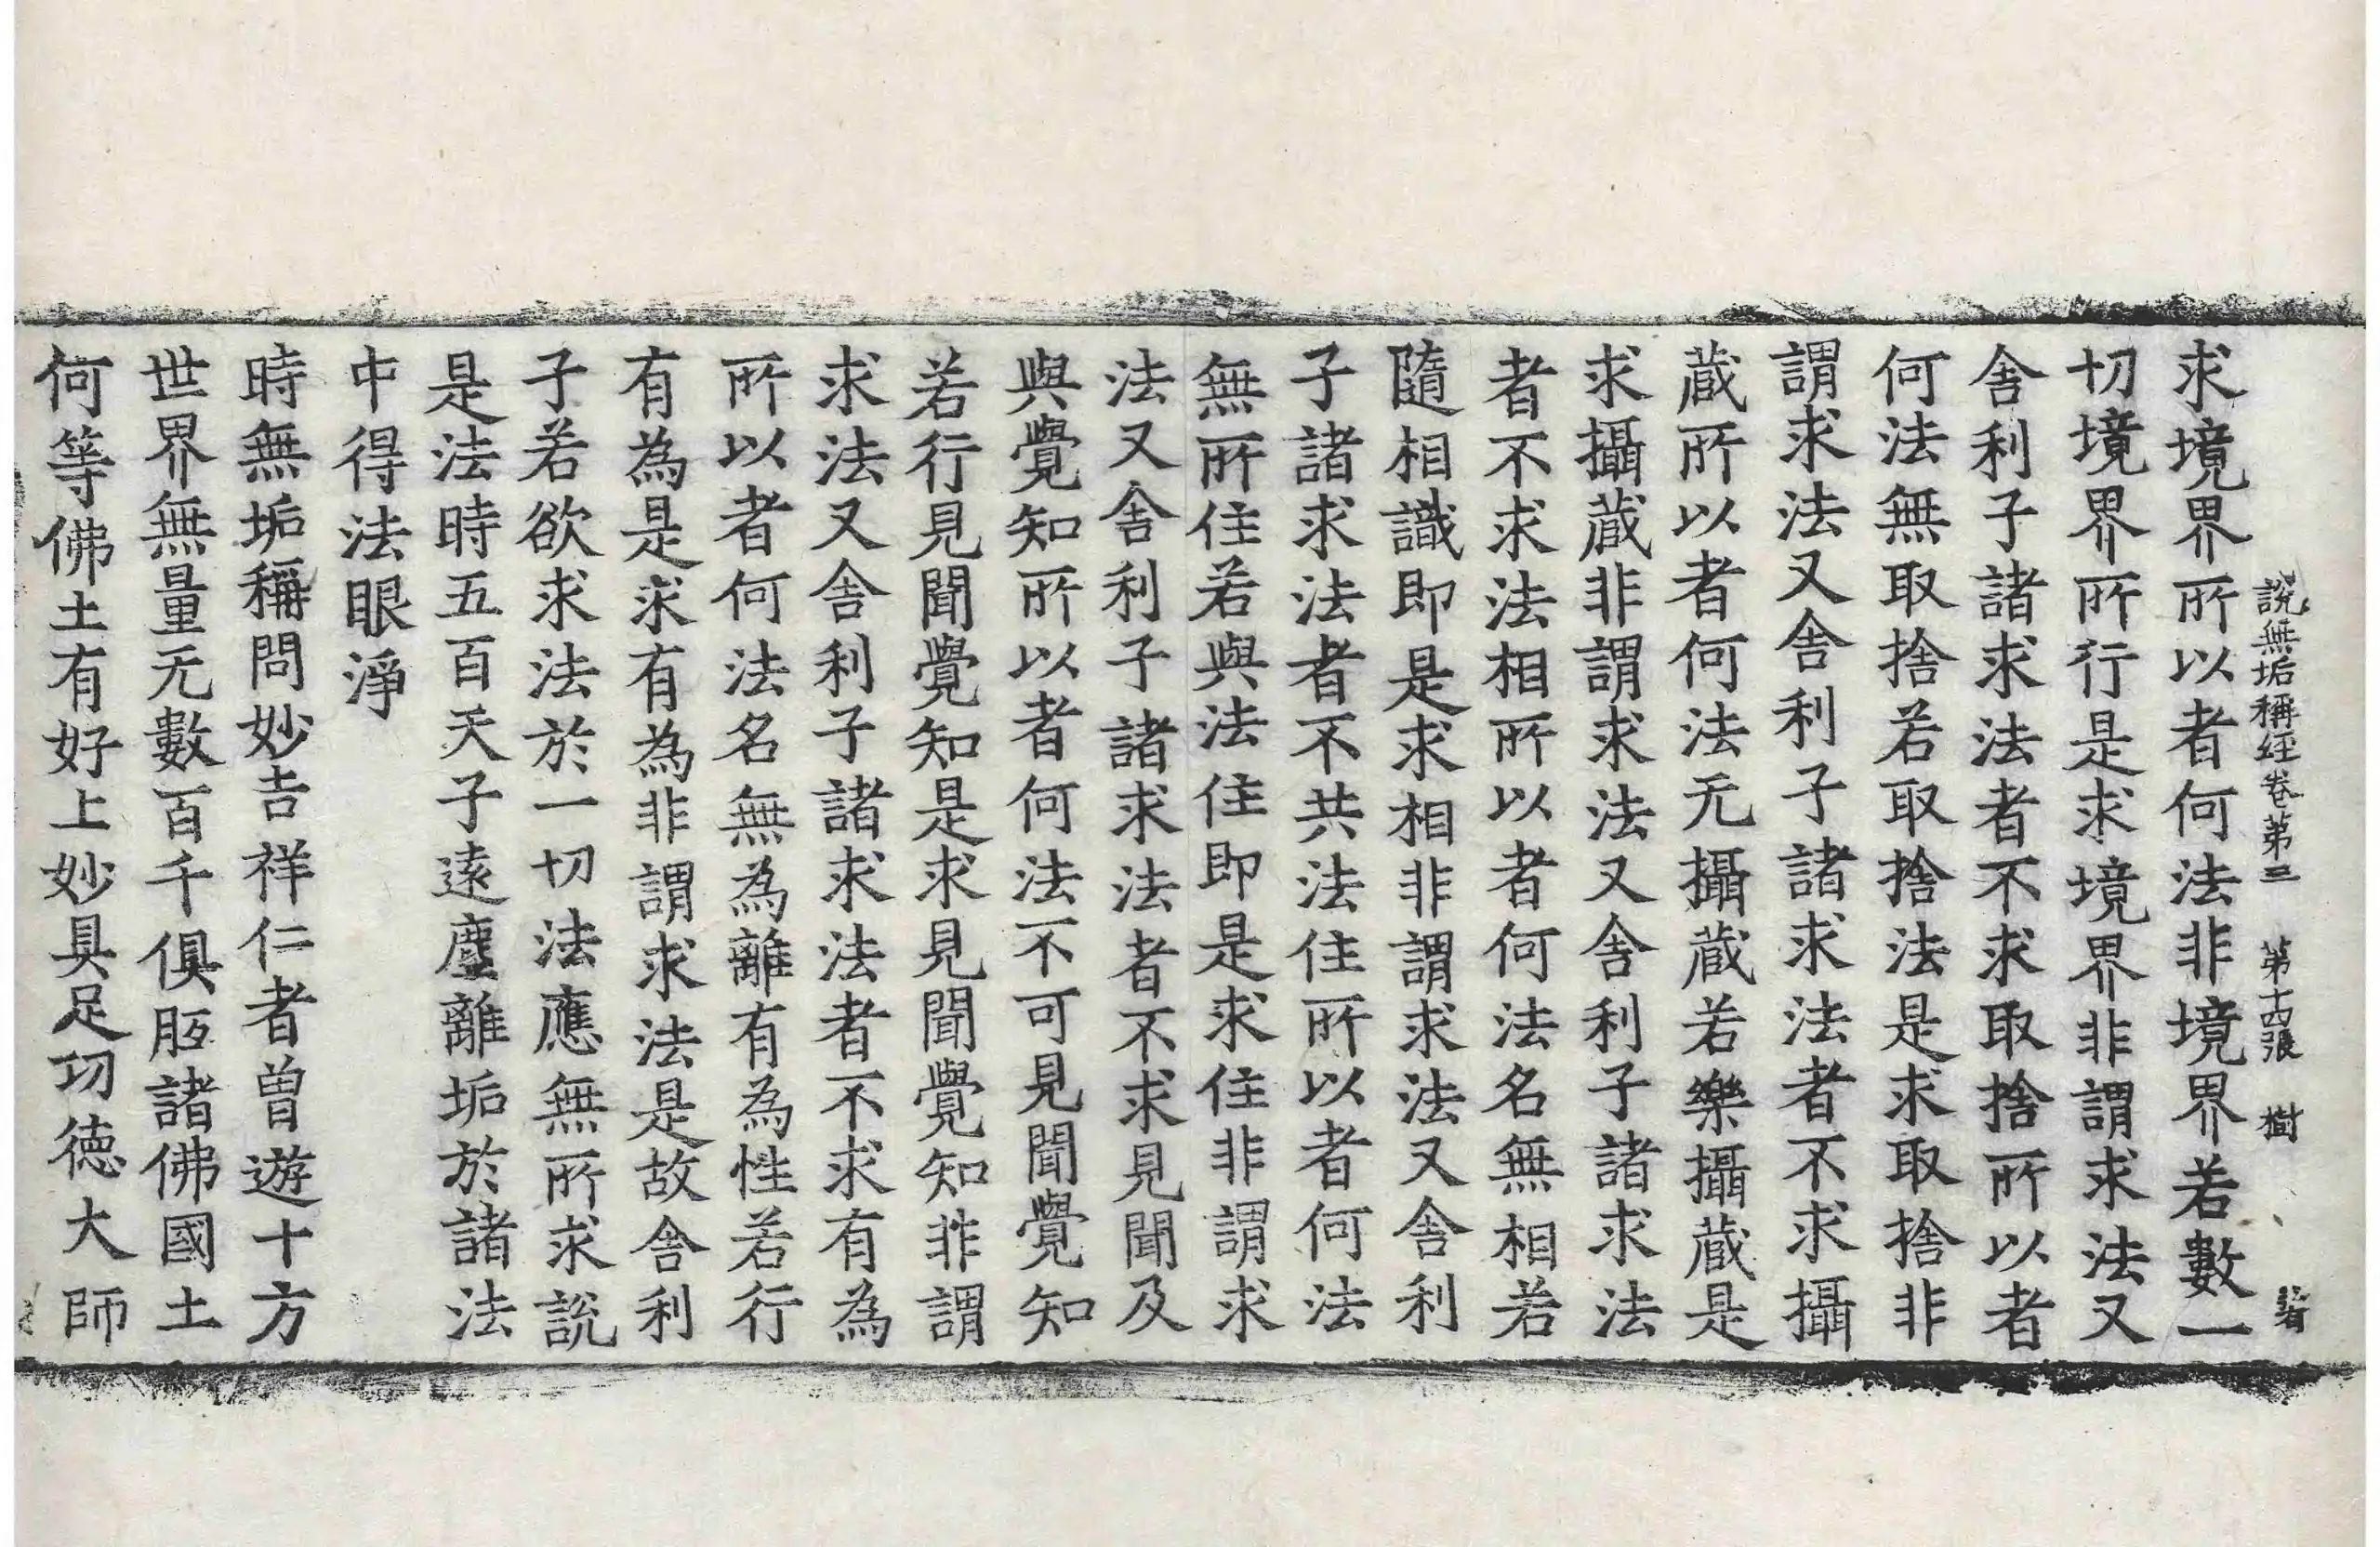 說無垢稱經卷第三　第十四張　樹
求境界所以者何法非境界若數一
切境界所行是求境界非謂求法又
舎利子諸求法者不求取捨所以者
何法無取捨若取捨法是求取捨非
謂求法又舎利子諸求法者不求攝
蔵所以者何法无攝蔵若樂攝蔵是
求攝蔵非謂求法又舎利子諸求法
者不求法相所以者何法名無相若
隨相識即是求相非謂求法又舎利
子諸求法者不共法住所以者何法
無所住若與法住即是求住非謂求
法又舎利子諸求法者不求見聞及
與覺知所以者何法不可見聞覺知
若行見聞覺知是求見聞覺知非謂
求法又舎利子諸求法者不求有為
所以者何法名無為離有為性若行
有為是求有為非謂求法是故舎利
子若欲求法於一切法應無所求說
是法時五百天子遠塵離垢於諸法
中得法眼淨
時無垢稱問妙吉祥仁者曾遊十方
世界無量无數百千俱胝諸佛國土
何等佛土有好上妙具足功德大師